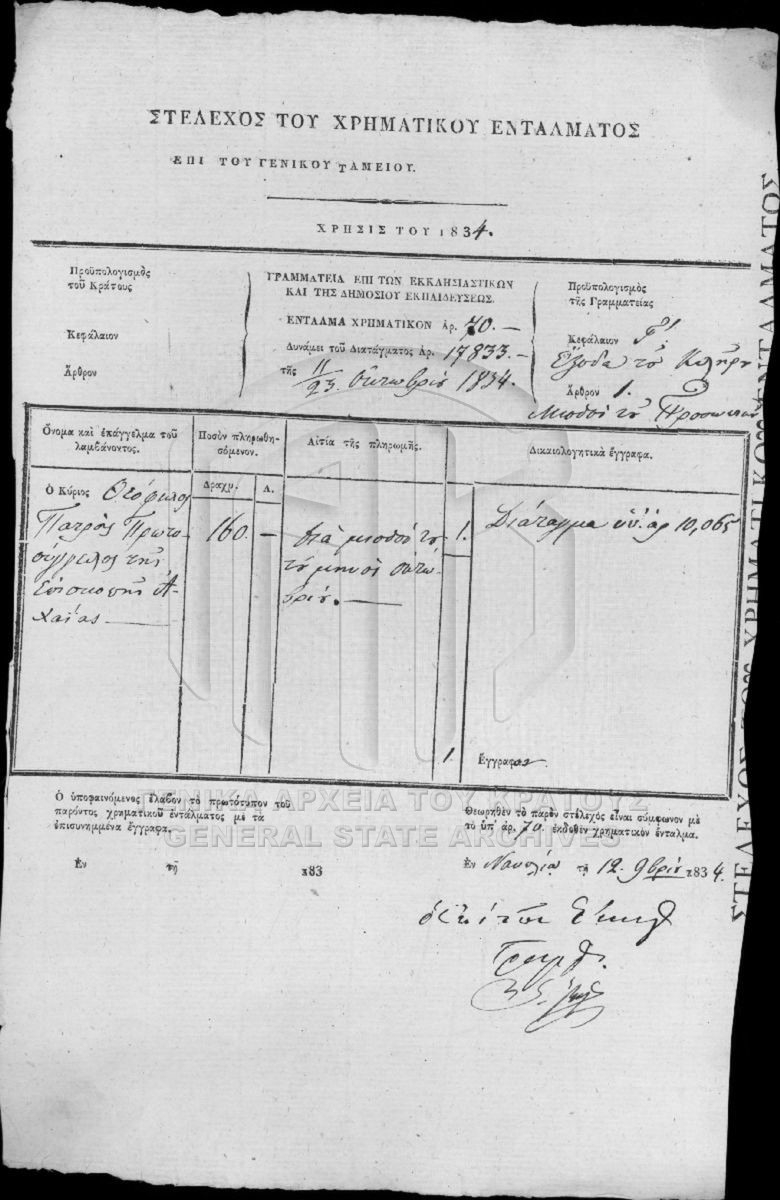 ΣΤΕΛΕΧΟΣ ΤΟΥ ΧΡΗΜΑΤΙΚΟΥ ΕΝΤΑΛΜΑΤΟΣ
ΕΠΙ ΤΟΥ ΓΕΝΙΚΟΥ ΤΑΜΕΙΟΥ.
ΧΡΗΣΙΣ ΤΟΥ 1834.
Προϋπολογισμὸς
τοῦ Κράτους
Κεφάλαιον
Ἄρθρον
ΓΡΑΜΜΑΤΕΙΑ ΕΠΙ ΤΩΝ ΕΚΚΛΗΣΙΑΣΤΙΚΩΝ
ΚΑΙ ΤΗΣ ΔΗΜΟΣΙΟΥ ΕΚΠΑΙΔΕΥΣΕΩΣ.
ΕΝΤΑΛΜΑ ΧΡΗΜΑΤΙΚΟΝ Ἀρ. 70.—
Δυνάμει τοῦ Διατάγματος Ἀρ. 17833.—
τῆς 11/23 Ὀκτωβρίου 1834.
Προϋπολογισμὸς
τῆς Γραμματείας
Κεφάλαιον Γʹ
Ἔξοδα τοῦ Κλήρου
Ἄρθρον 1.
Μισθοὶ τοῦ
Ὄνομα καὶ ἐπάγγελμα τοῦ
λαμβάνοντος.
Ποσὸν πληρωθη-
σόμενον.
Δραχμ. Λ.
Αἰτία τῆς πληρωμῆς.
Δικαιολογητικὰ ἔγγραφα.
Ὁ Κύριος Θεόφιλος
Πατρὸς Πρωτο-
σύγγελος τῆς
Ἐπισκοπῆς Ἀ-
χαΐας —
160. —
διὰ μισθόν του
τοῦ μηνὸς ὀκτω-
βρίου. —
1. Διάταγμα ὑπ. ἀρ 10,065
1. Ἔγγραφον
Ὁ ὑποφαινόμενος ἔλαβον τὸ πρωτότυπον τοῦ
παρόντος χρηματικοῦ ἐντάλματος μὲ τὰ
ἐπισυνημμένα ἔγγραφα.
Ἐν τῇ 183
Θεωρηθὲν τὸ παρὸν στέλεχος εἶναι σύμφωνον μὲ
τὸ ὑπ' ἀρ. 70. ἐκδοθὲν χρηματικὸν ἔνταλμα.
Ἐν Ναυπλίῳ τῇ 12. 9βρίου 1834.
ΓΕΝΙΚΑ ΑΡΧΕΙΑ ΤΟΥ ΚΡΑΤΟΥΣ
GENERAL STATE ARCHIVES
ΣΤΕΛΕΧΟΣ ΤΟΥ ΧΡΗΜΑΤΙΚΟΥ ΕΝΤΑΛΜΑΤΟΣ